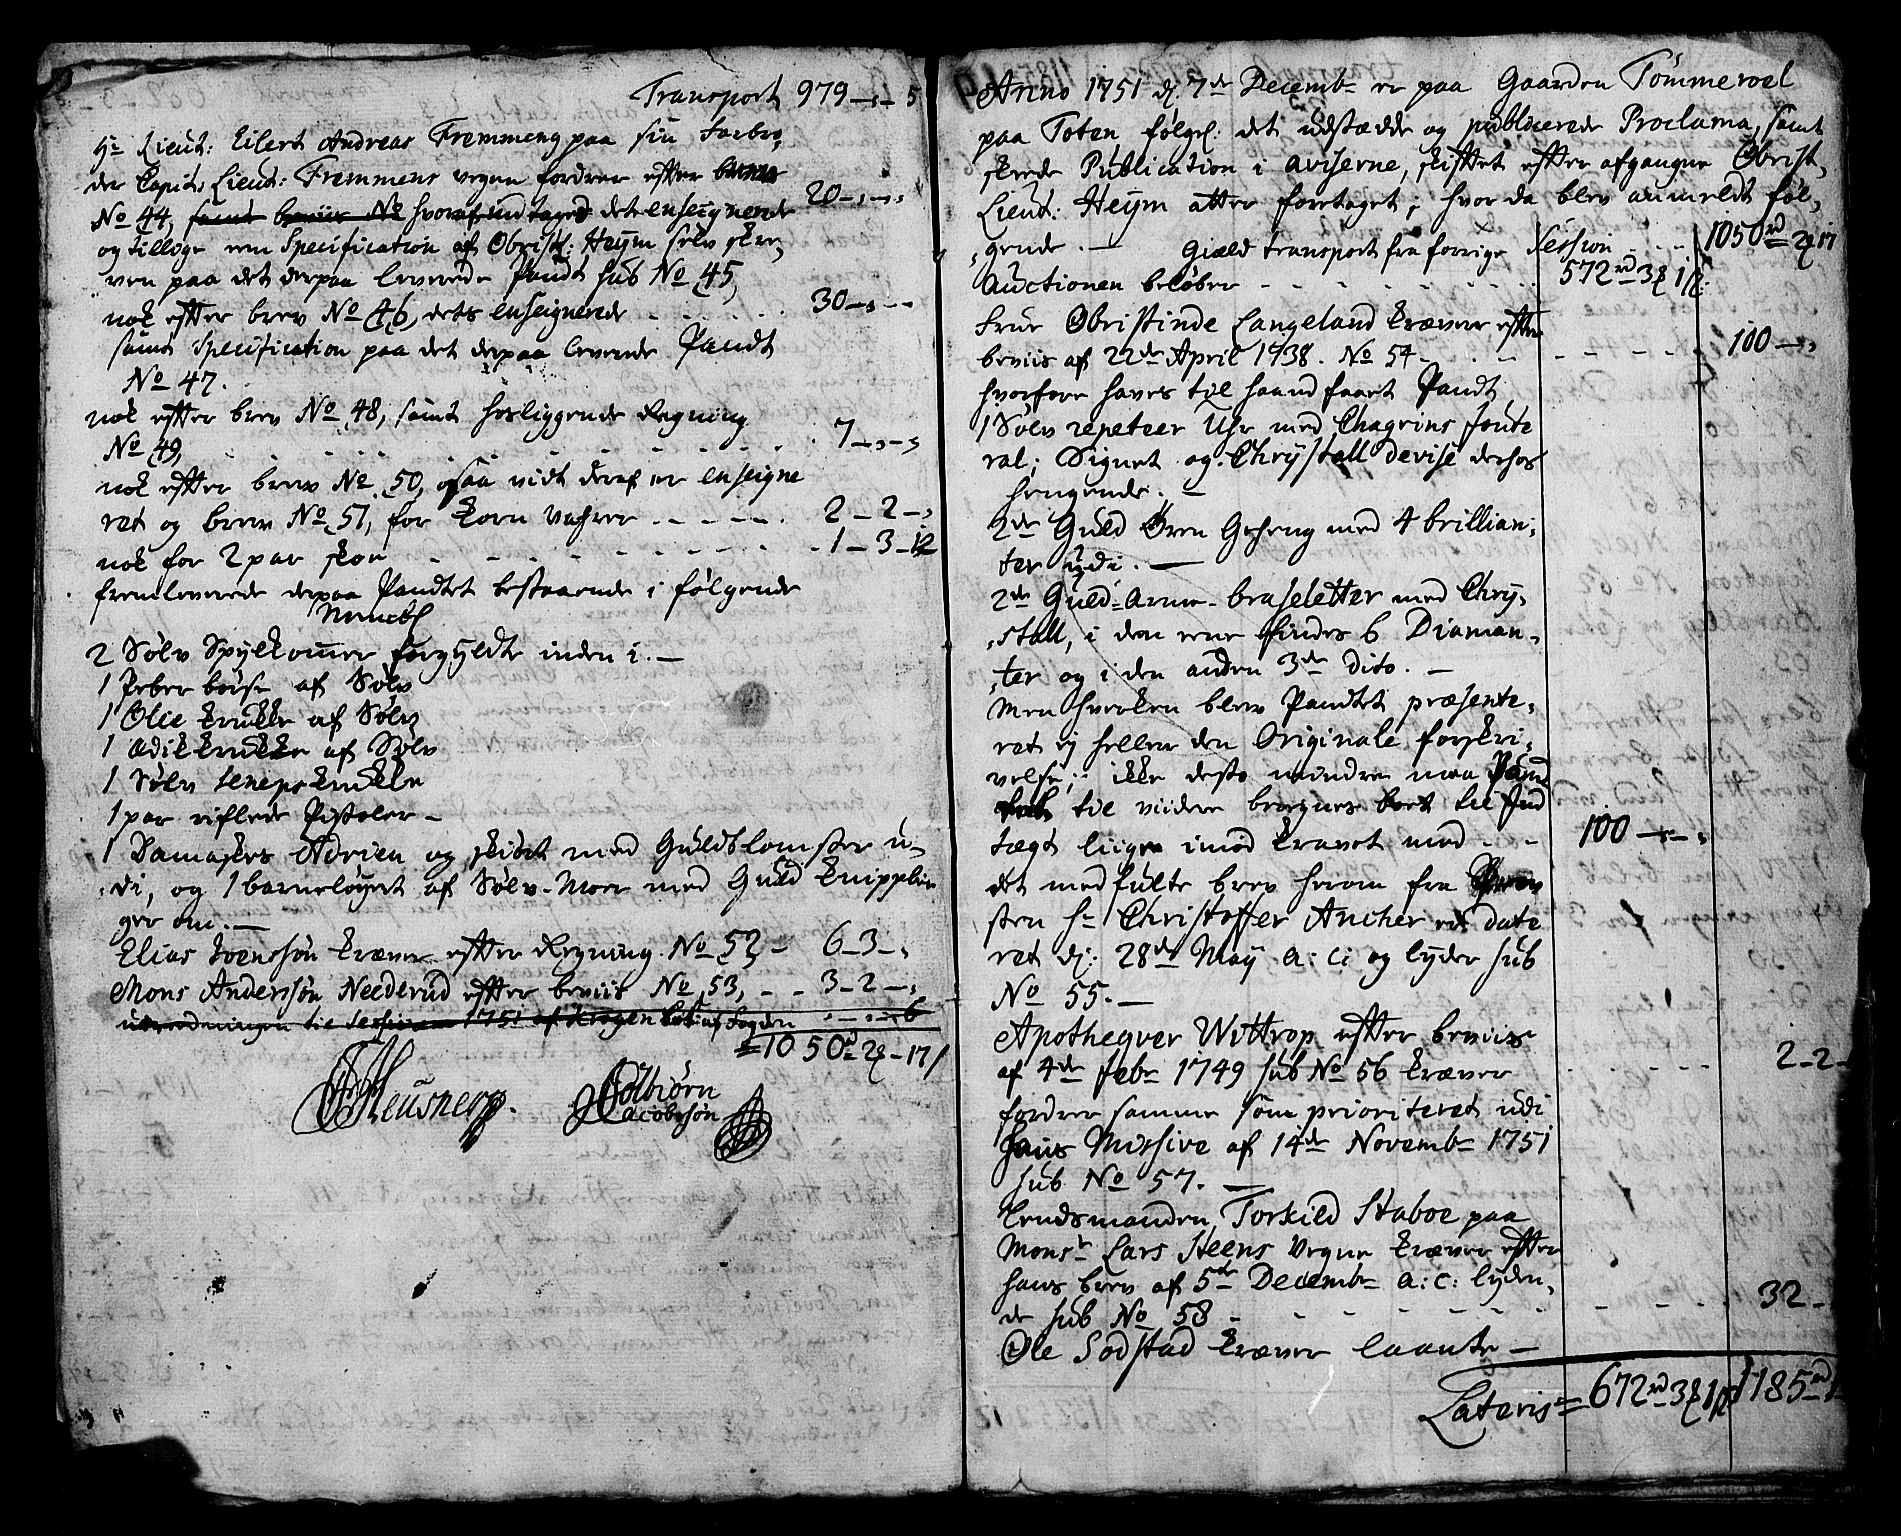 Transport 979 - " - 5
Hr Lieut: Eilert Andreas Fremmeng paa sin Farbro,
der Capit: Lieut: Fremmens vegne fordrer efter
No 44, samt beviis No hvoraf indtaged det enseignerede 20 - " - "
og tillige een Specification af Obrist: Heÿm selv skre,
ven paa det derpaa leverede Pandt sub No 45,
nok efter brev No 46, dets enseignerede - - - 30 - " - "
samt Specification paa det derpaa leverede Pandt
No 47.
nok efter brev No 48, samt hosliggende Regning
No 49, - - - 7 - " - "
nok efter brev No 50, saa vidt deraf er enseigne
ret og brev No 51, for Korn Vahrer - - - 2 - 2 - "
nok for 2 par skoe - - - 1 - 3 - 12
fremleverede derpaa Pandtet bestaaende i følgende
Nemlig
2 Sølv Spÿlkommer forgÿldte inden i. -
1 Peber bøsse af Sølv
1 Olie krukke af Sølv
1 Ædikkrukke af Sølv
1 Sølv Seneps krukke
1 par riflede Pistoler -
1 Damaskes Adrien og skiørt med Guldblomster u,
di, og 1 barneløyert af Sølv-Moer med Guld Knipplin
ger om. -
Elias Svenssøn kræver efter Regning No 52 - 6 - 3 - "
Mons Anderssøn Neederud efter beviis No 53, - - 3 - 2 - "
til Sessionen 1751 af - " - 6
= 1050 rd 2 - 17
Heusner
Colbiørn
Jacobssøn
Anno 1751 d 7de Decembr er paa Gaarden Tömmervol
paa Toten følgel: det udstædde og publicerede Proclama, samt
skeede Publication i aviserne, skiftet efter afgangne Obrist,
Lieut: Heÿm atter foretaget; hvor da blev anmeldt føl,
gende. - Giæld transport fra forrige Session - - - 1050 rd 2 17
Auctionen beløber - - - 572 rd 3 1
Frue Obristinde Langeland kræver efter
beviis af 22de April 1738. No 54 - - - 100 - "
hvorfore haves til haand faaet Pandt
1 Sølv repeteer Uhr med Chagrins foute
ral; Signet og Chrÿstall devise derhos
hengende. -
2de Guld Ören Geheng med 4 brillian,
ter udi. -
2de Guld-arme-braseletter med Chrÿ,
stall, i den eene findes 6 Diaman,
ter og i den anden 3de dito. -
Men hverken blev Pandtet præsente,
ret ey heller den Originale forskri,
velse; ikke desto mindre maa Pand
til viidere beregnes bort til Ind
tægt liige imod kravet med - - 100 - " - "
det medfulte brev herom fra
sten Hr Christoffer Ancher er date
ret d: 28de Maÿ a: c: og lyder sub
No 55. -
Apothequer Wittrop efter beviis
af 4de Febr 1749 sub No 56 kræver - - - 2 - 2 -
fordrer samme som prioriteret udi
hans Missive af 14de Novembr 1751
sub No 57. -
Lendsmanden Torkild Staboe paa
Monsr Lars Steens Vegne kræver efter
hans brev af 5de Decembr a: c: lyden,
de sub No 58 - - - 32 -
Ole Sodstad kræver laante -
Lateris = 672 rd 3 1 1185 rd